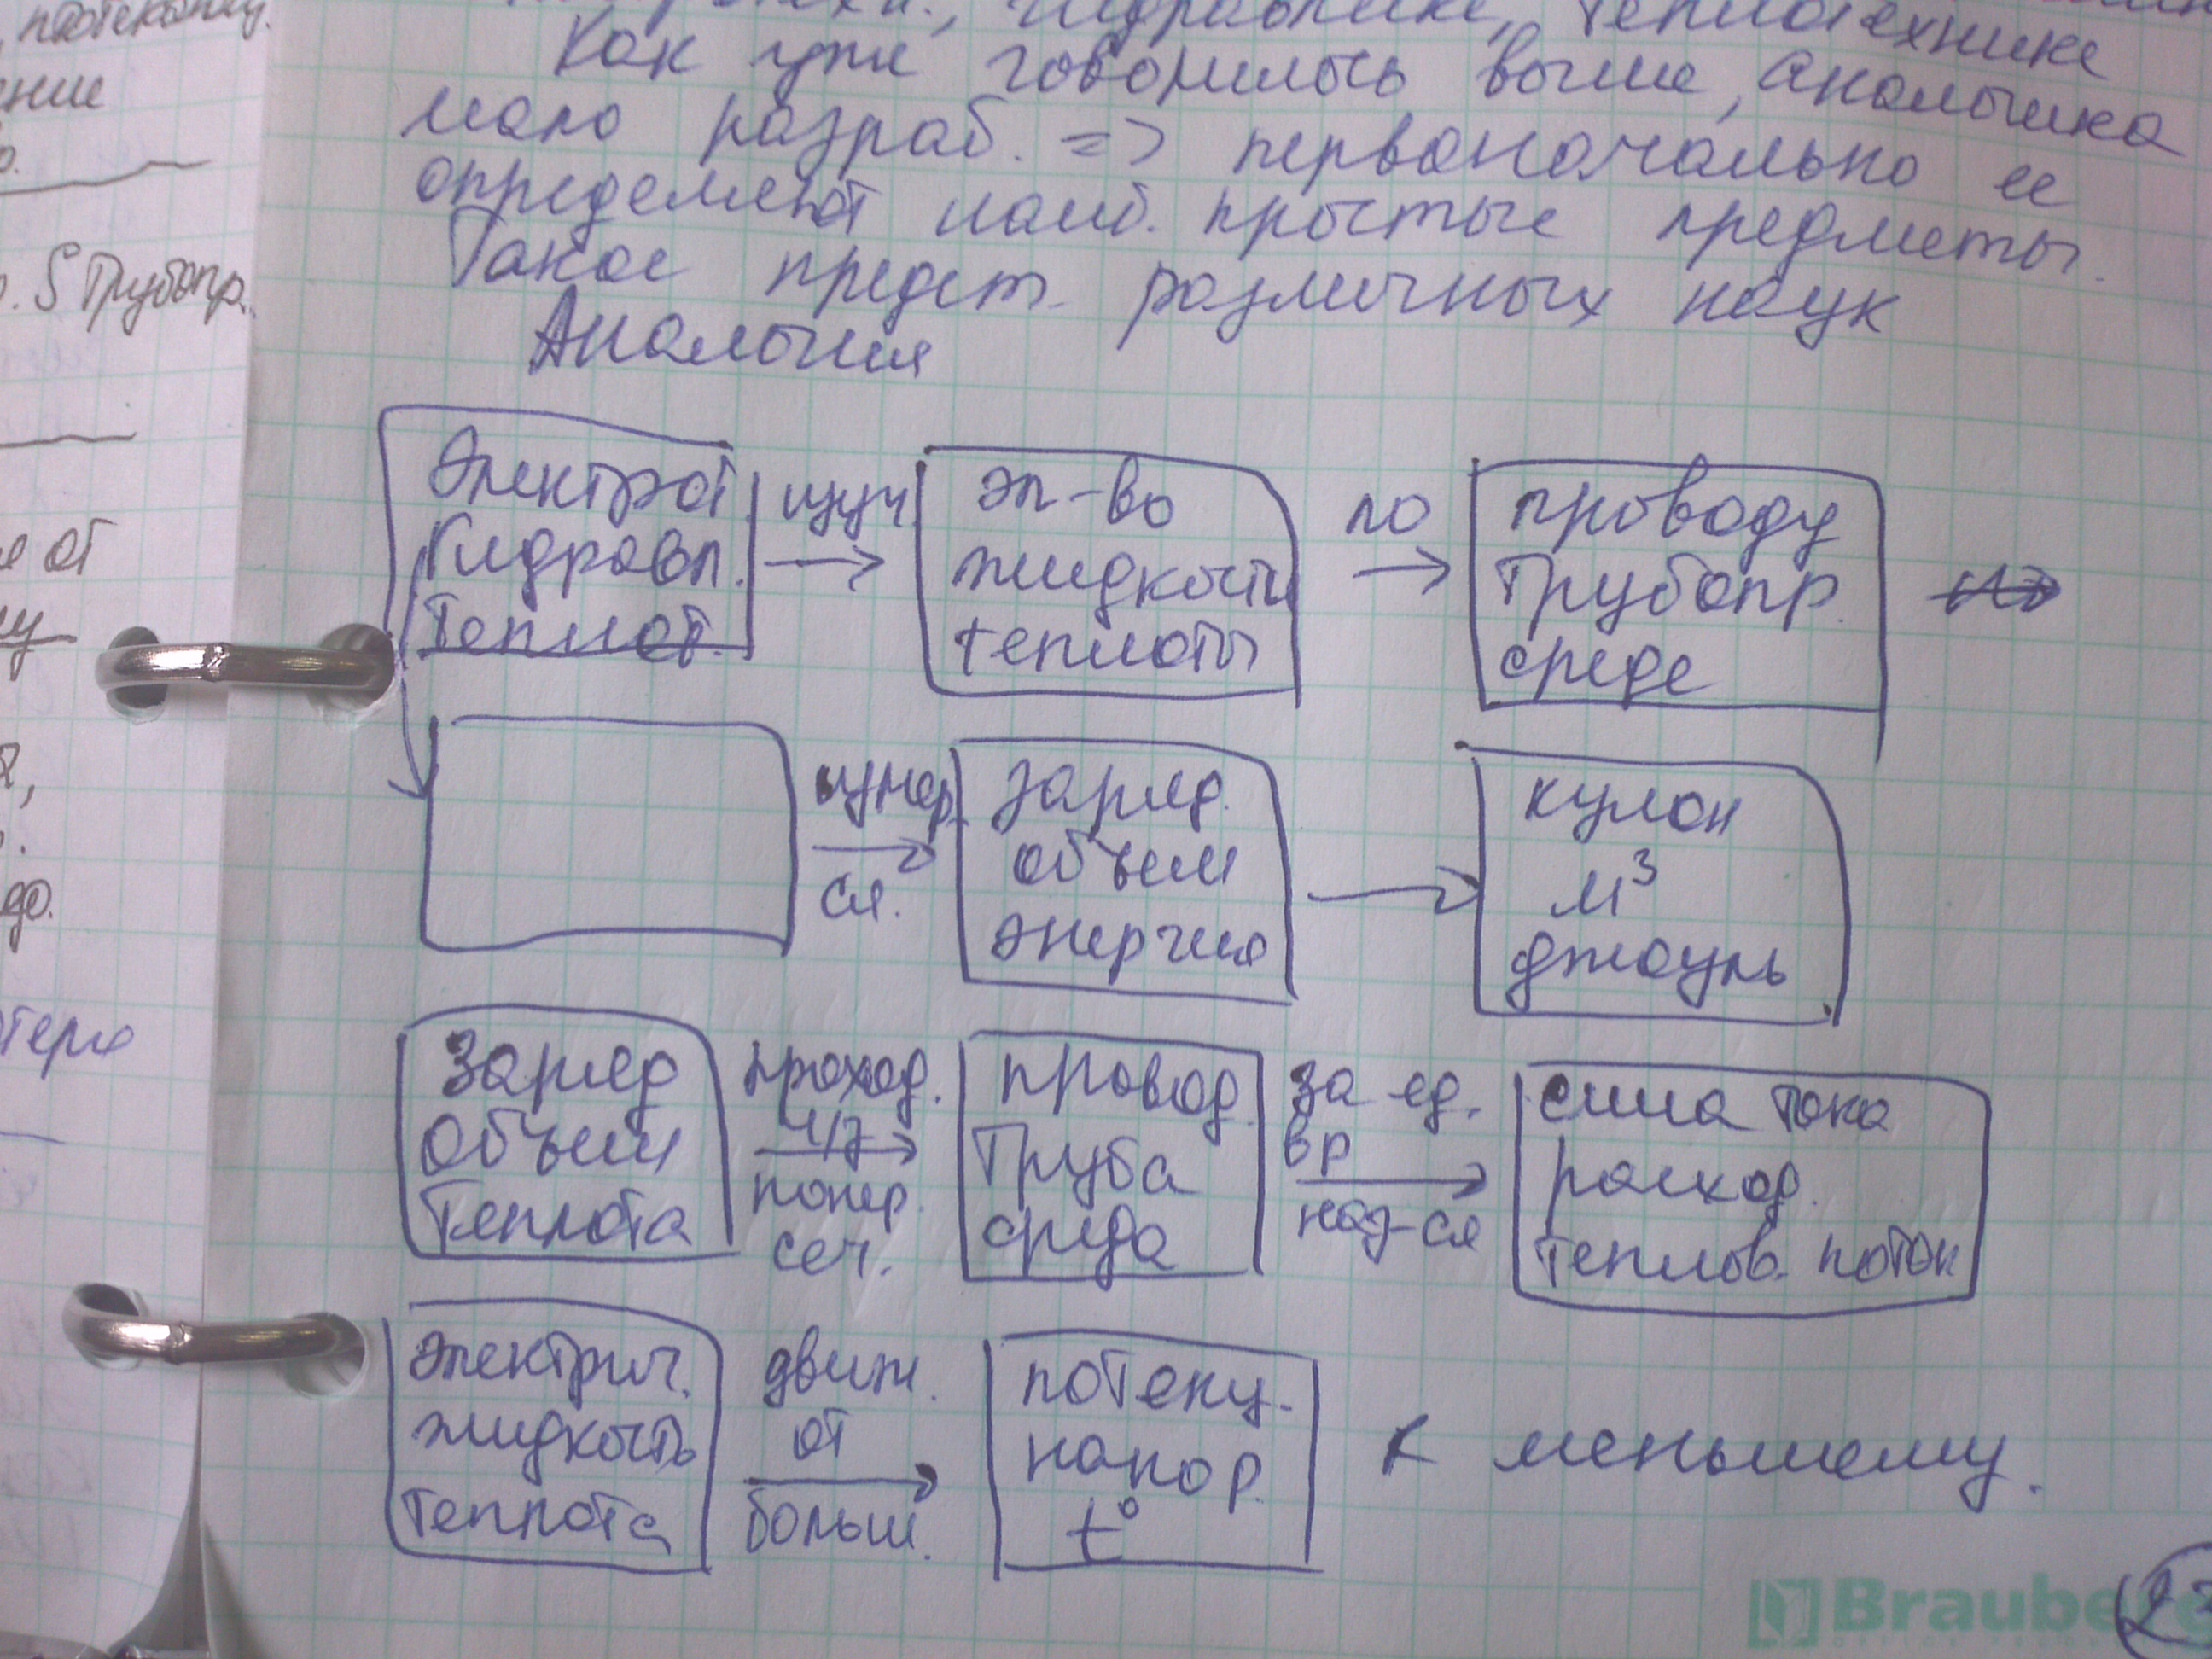 потенциу.
ение
о.
р. S Трубопр.
е от
му
а,
до.
терх
, гидравлике, теплотехнике
Как уже говорилось выше, аналогика
мало разраб. => первоначально ее
определяют наиб. простые предметы.
Такое предст. различных наук
Аналогия
Электрот
Гидравл.
Теплот.
изуч
эл-во
жидкости
теплоты
по
проводу
Трубопр.
среде
измер.
ся.
заряд.
объем
энергия
кулон
м³
джоуль
Заряд
Объем
Теплота
проход.
ч/з
попер.
сеч.
провод.
Труба
среда
за ед.
вр
наз-ся
сила тока
расход.
теплов. поток
электрич.
жидкость
теплота
движ.
от
больш.
потенц.
напор.
t°
к меньшему.
Braube
23